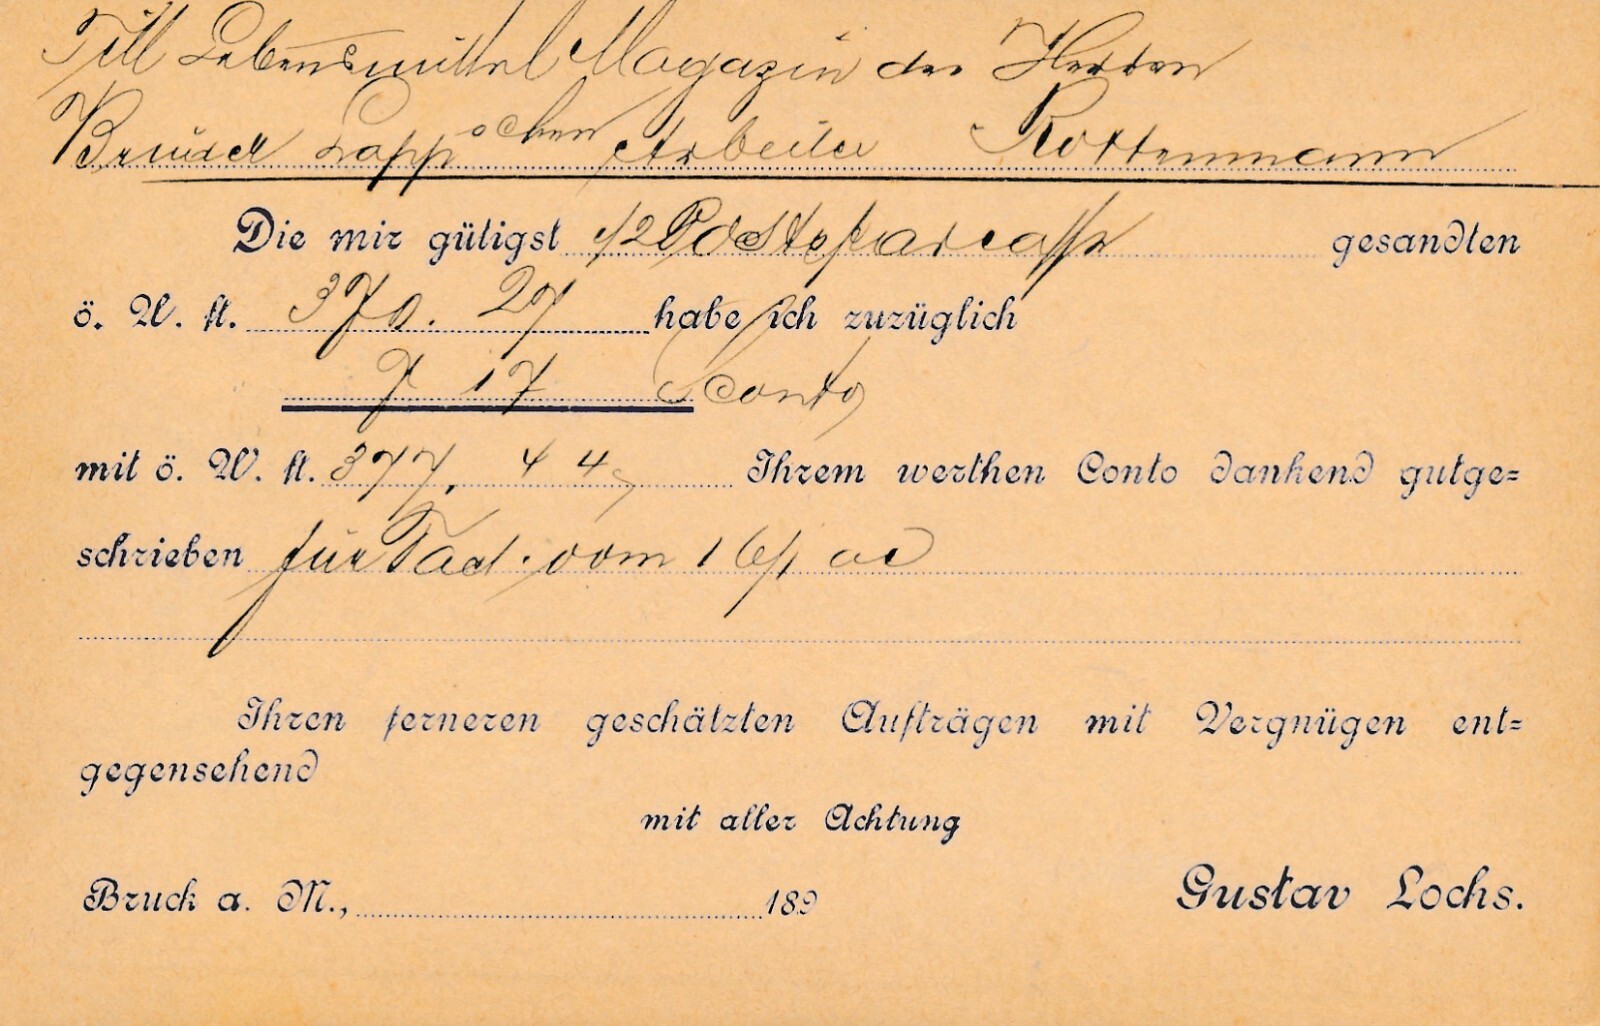 Titl Lebensmittel Magazin der Herren
Brüder Lapp'schen Arbeiter Rottenmann
Die mir gütigst Postsparcassa gesandten
ö. W. fl. 370. 27 habe ich zuzüglich
7 17 Sconto
mit ö. W. fl. 377. 44 Ihrem werthen Conto dankend gutge=
schrieben für Fact. vom 16/1 ac
Ihren ferneren geschätzten Aufträgen mit Vergnügen ent=
gegensehend
mit aller Achtung
Bruck a. M., 189 Gustav Lochs.